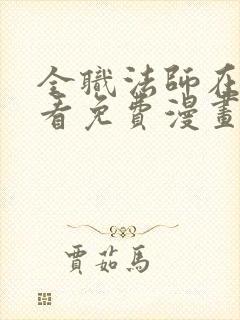 全職法師在
看免費漫畫
賈茹馬